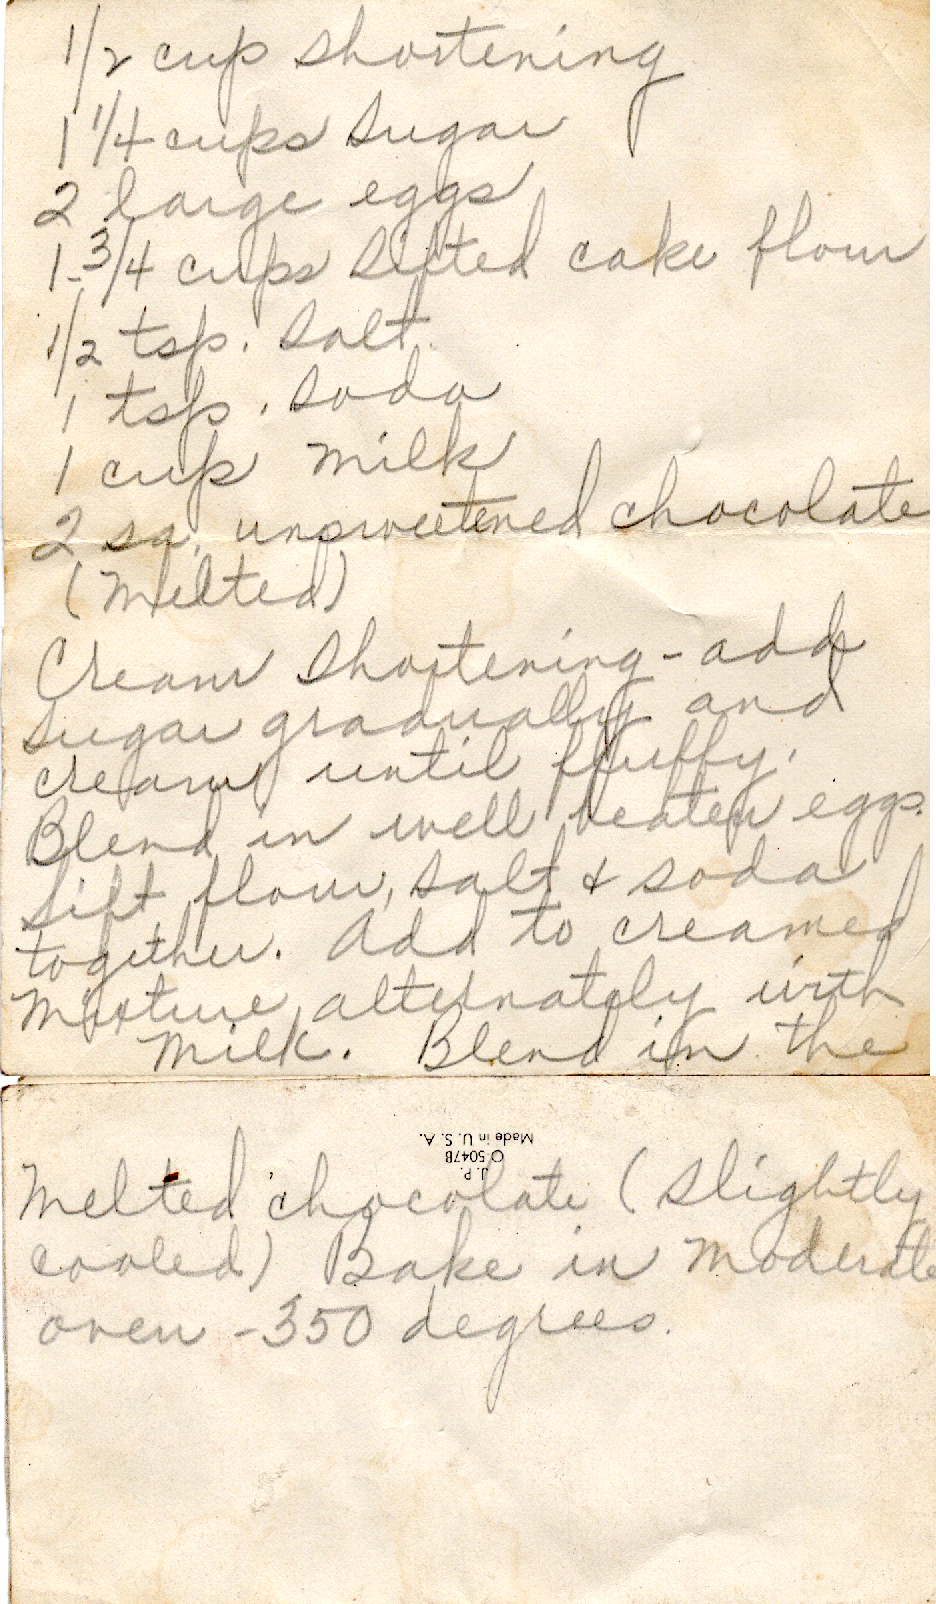 1/2 cup shortening
1 1/4 cups sugar
2 large eggs
1-3/4 cups sifted cake flour
1/2 tsp. salt
1 tsp. soda
1 cup milk
2 sq. unsweetened chocolate
(melted)
Cream shortening - add
sugar gradually and
cream until fluffy.
Blend in well beaten eggs.
Sift flour, salt & soda
together. Add to creamed
mixture alternately with
milk. Blend in the
J. P.
O 5047B
Made in U. S. A.
melted chocolate (slightly
cooled) Bake in moderate
oven - 350 degrees.